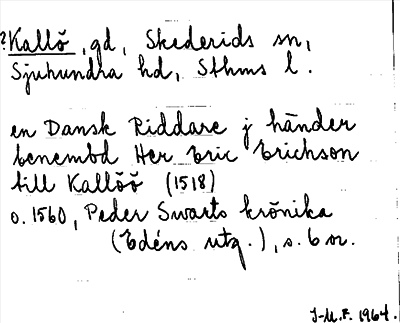 ?Kallö, gd, Skederids sn,
Sjuhundra hd, Sthms l.
en Dansk Riddare j händer
benembd Her Eric Erichson
till Kallöö (1518)
o. 1560, Peder Swarts krönika
(Edéns utg.), s. 6 nr.
J-M.F. 1964.